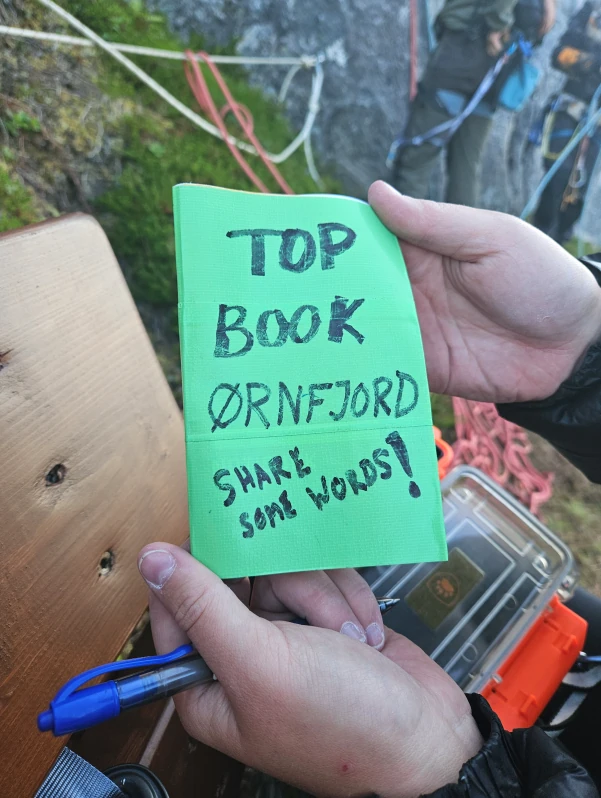 TOP
BOOK
ØRNFJORD
SHARE
SOME WORDS!